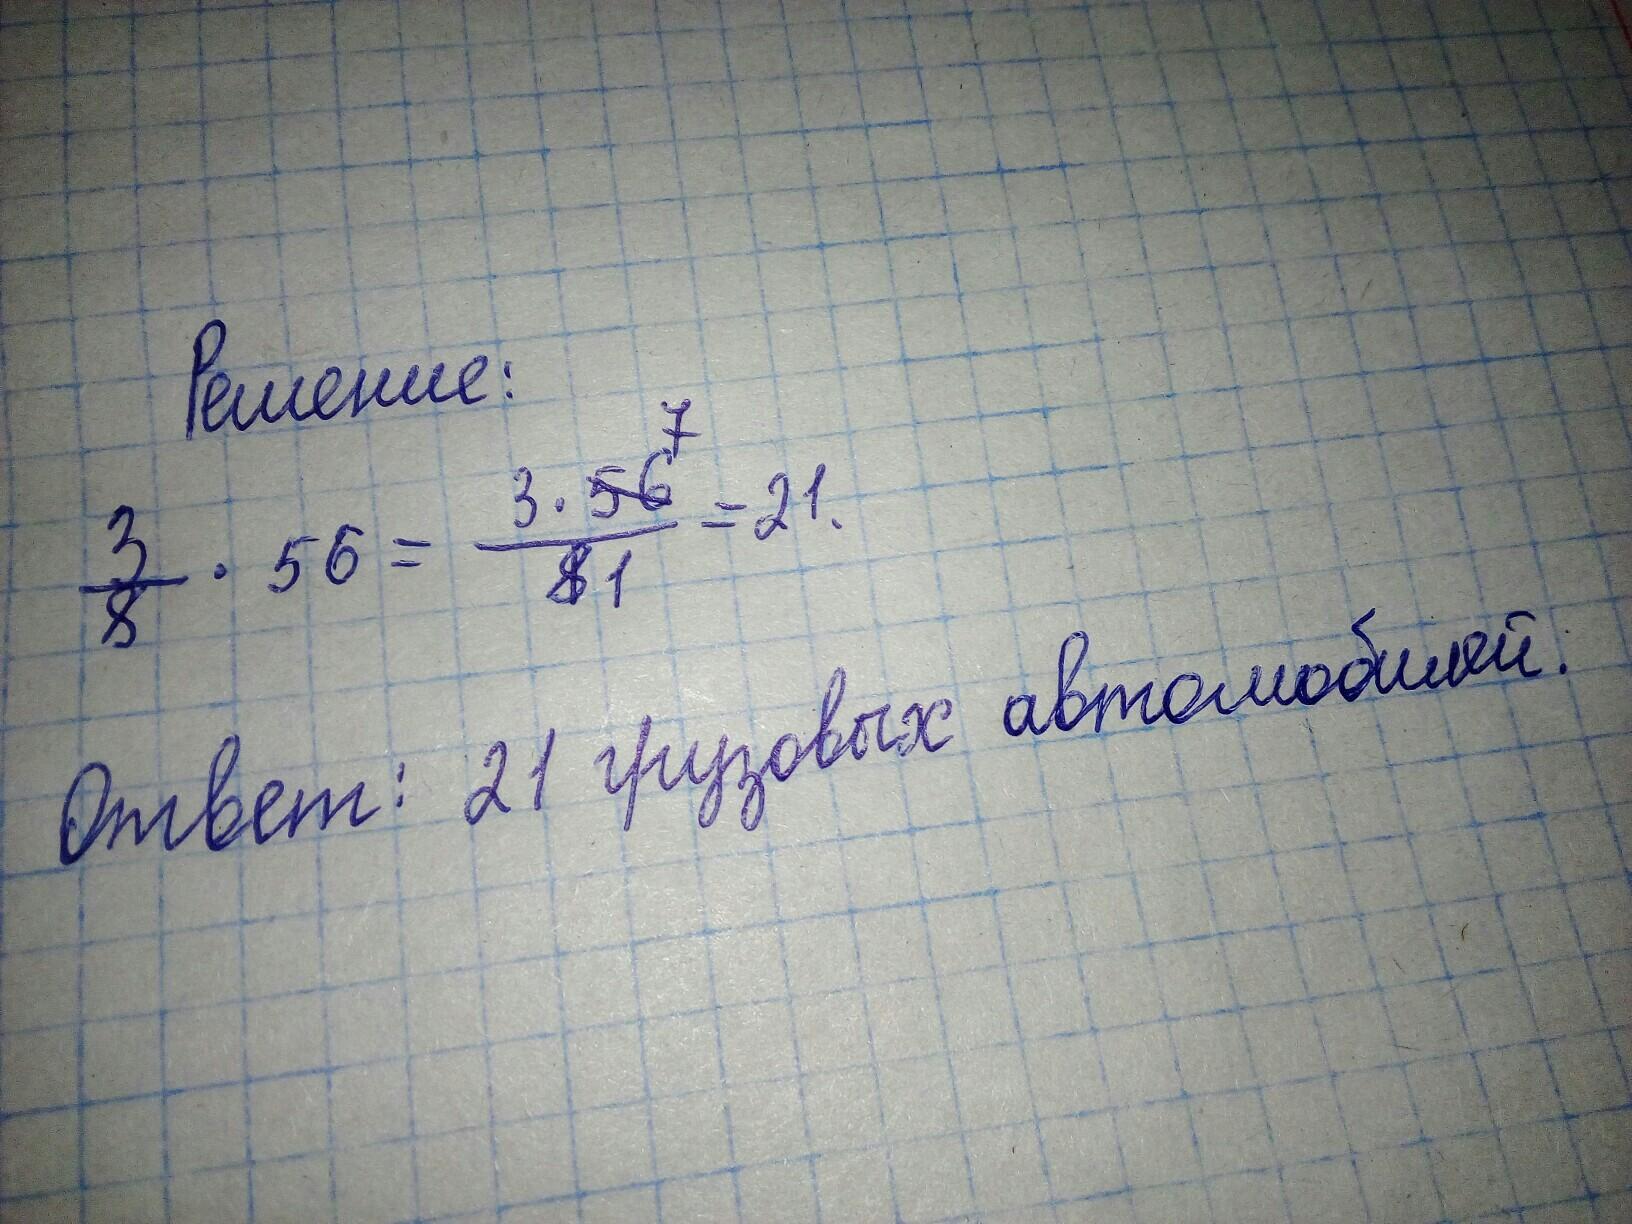 Решение:
3/8 · 56 = 3·56 7/8 1 = 21.
Ответ: 21 грузовых автомобилей.